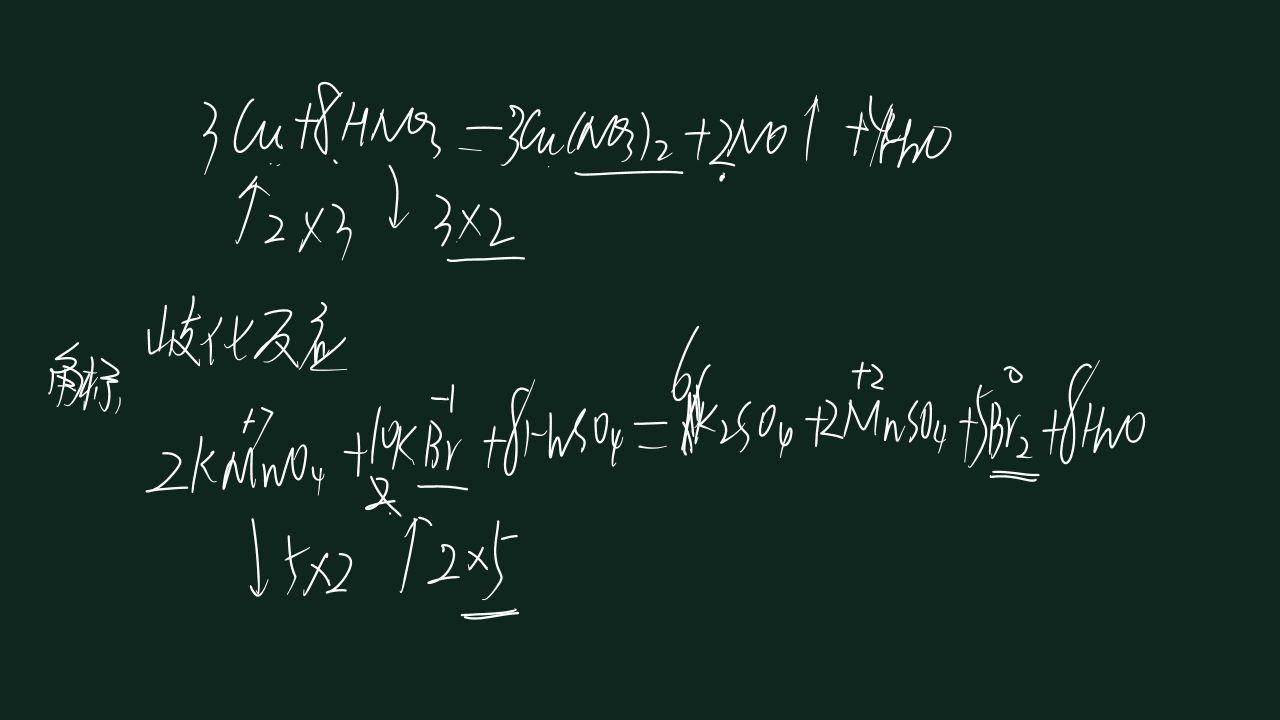 3Cu+8HNO3=3Cu(NO3)2+2NO↑+4H2O
↑2×3 ↓3×2
歧化反应
角标,
+7 -1 +2 0
2KMnO4+10KBr+8H2SO4=6K2SO4+2MnSO4+5Br2+8H2O
2
↓5×2 ↑2×5